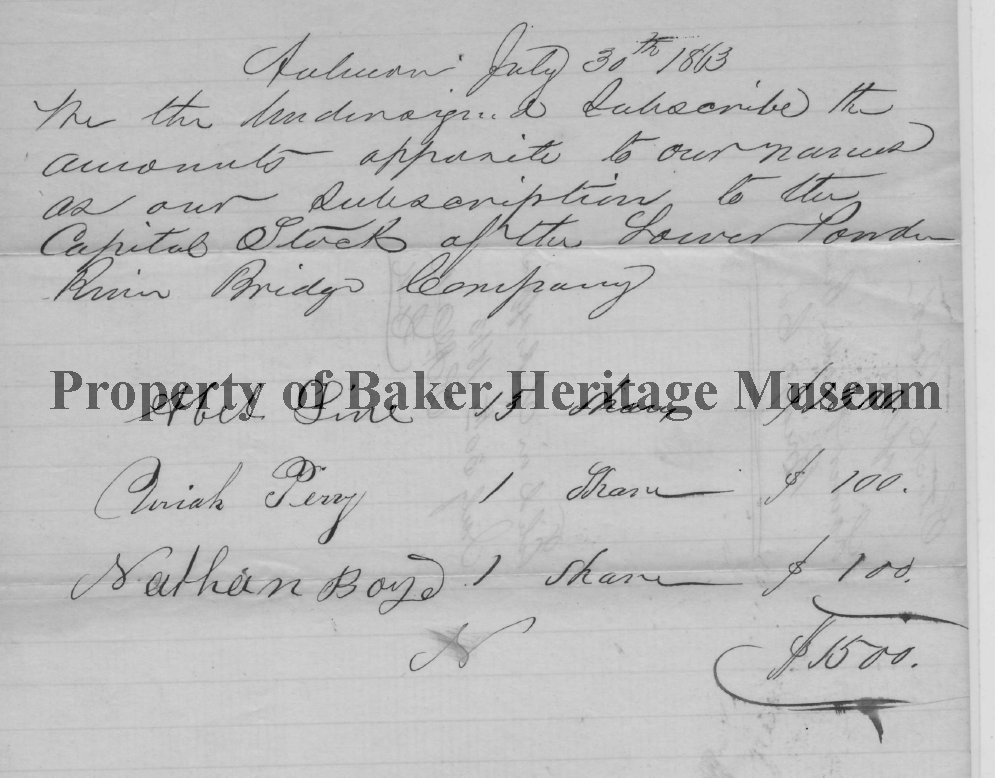 Auburn July 30th 1863
We the Undersigned Subscribe the
amounts opposite to our names
as our Subscription to the
Capital Stock of the Lower Powder
River Bridge Company
Property of Baker Heritage Museum
15 Shares
Uriah Perry 1 Share $100.
Nathan Boyd 1 Share $100.
$1500.